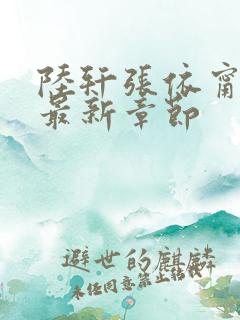 陸軒張依甯
最新章節
避世的麒麟
未經同意禁止轉載